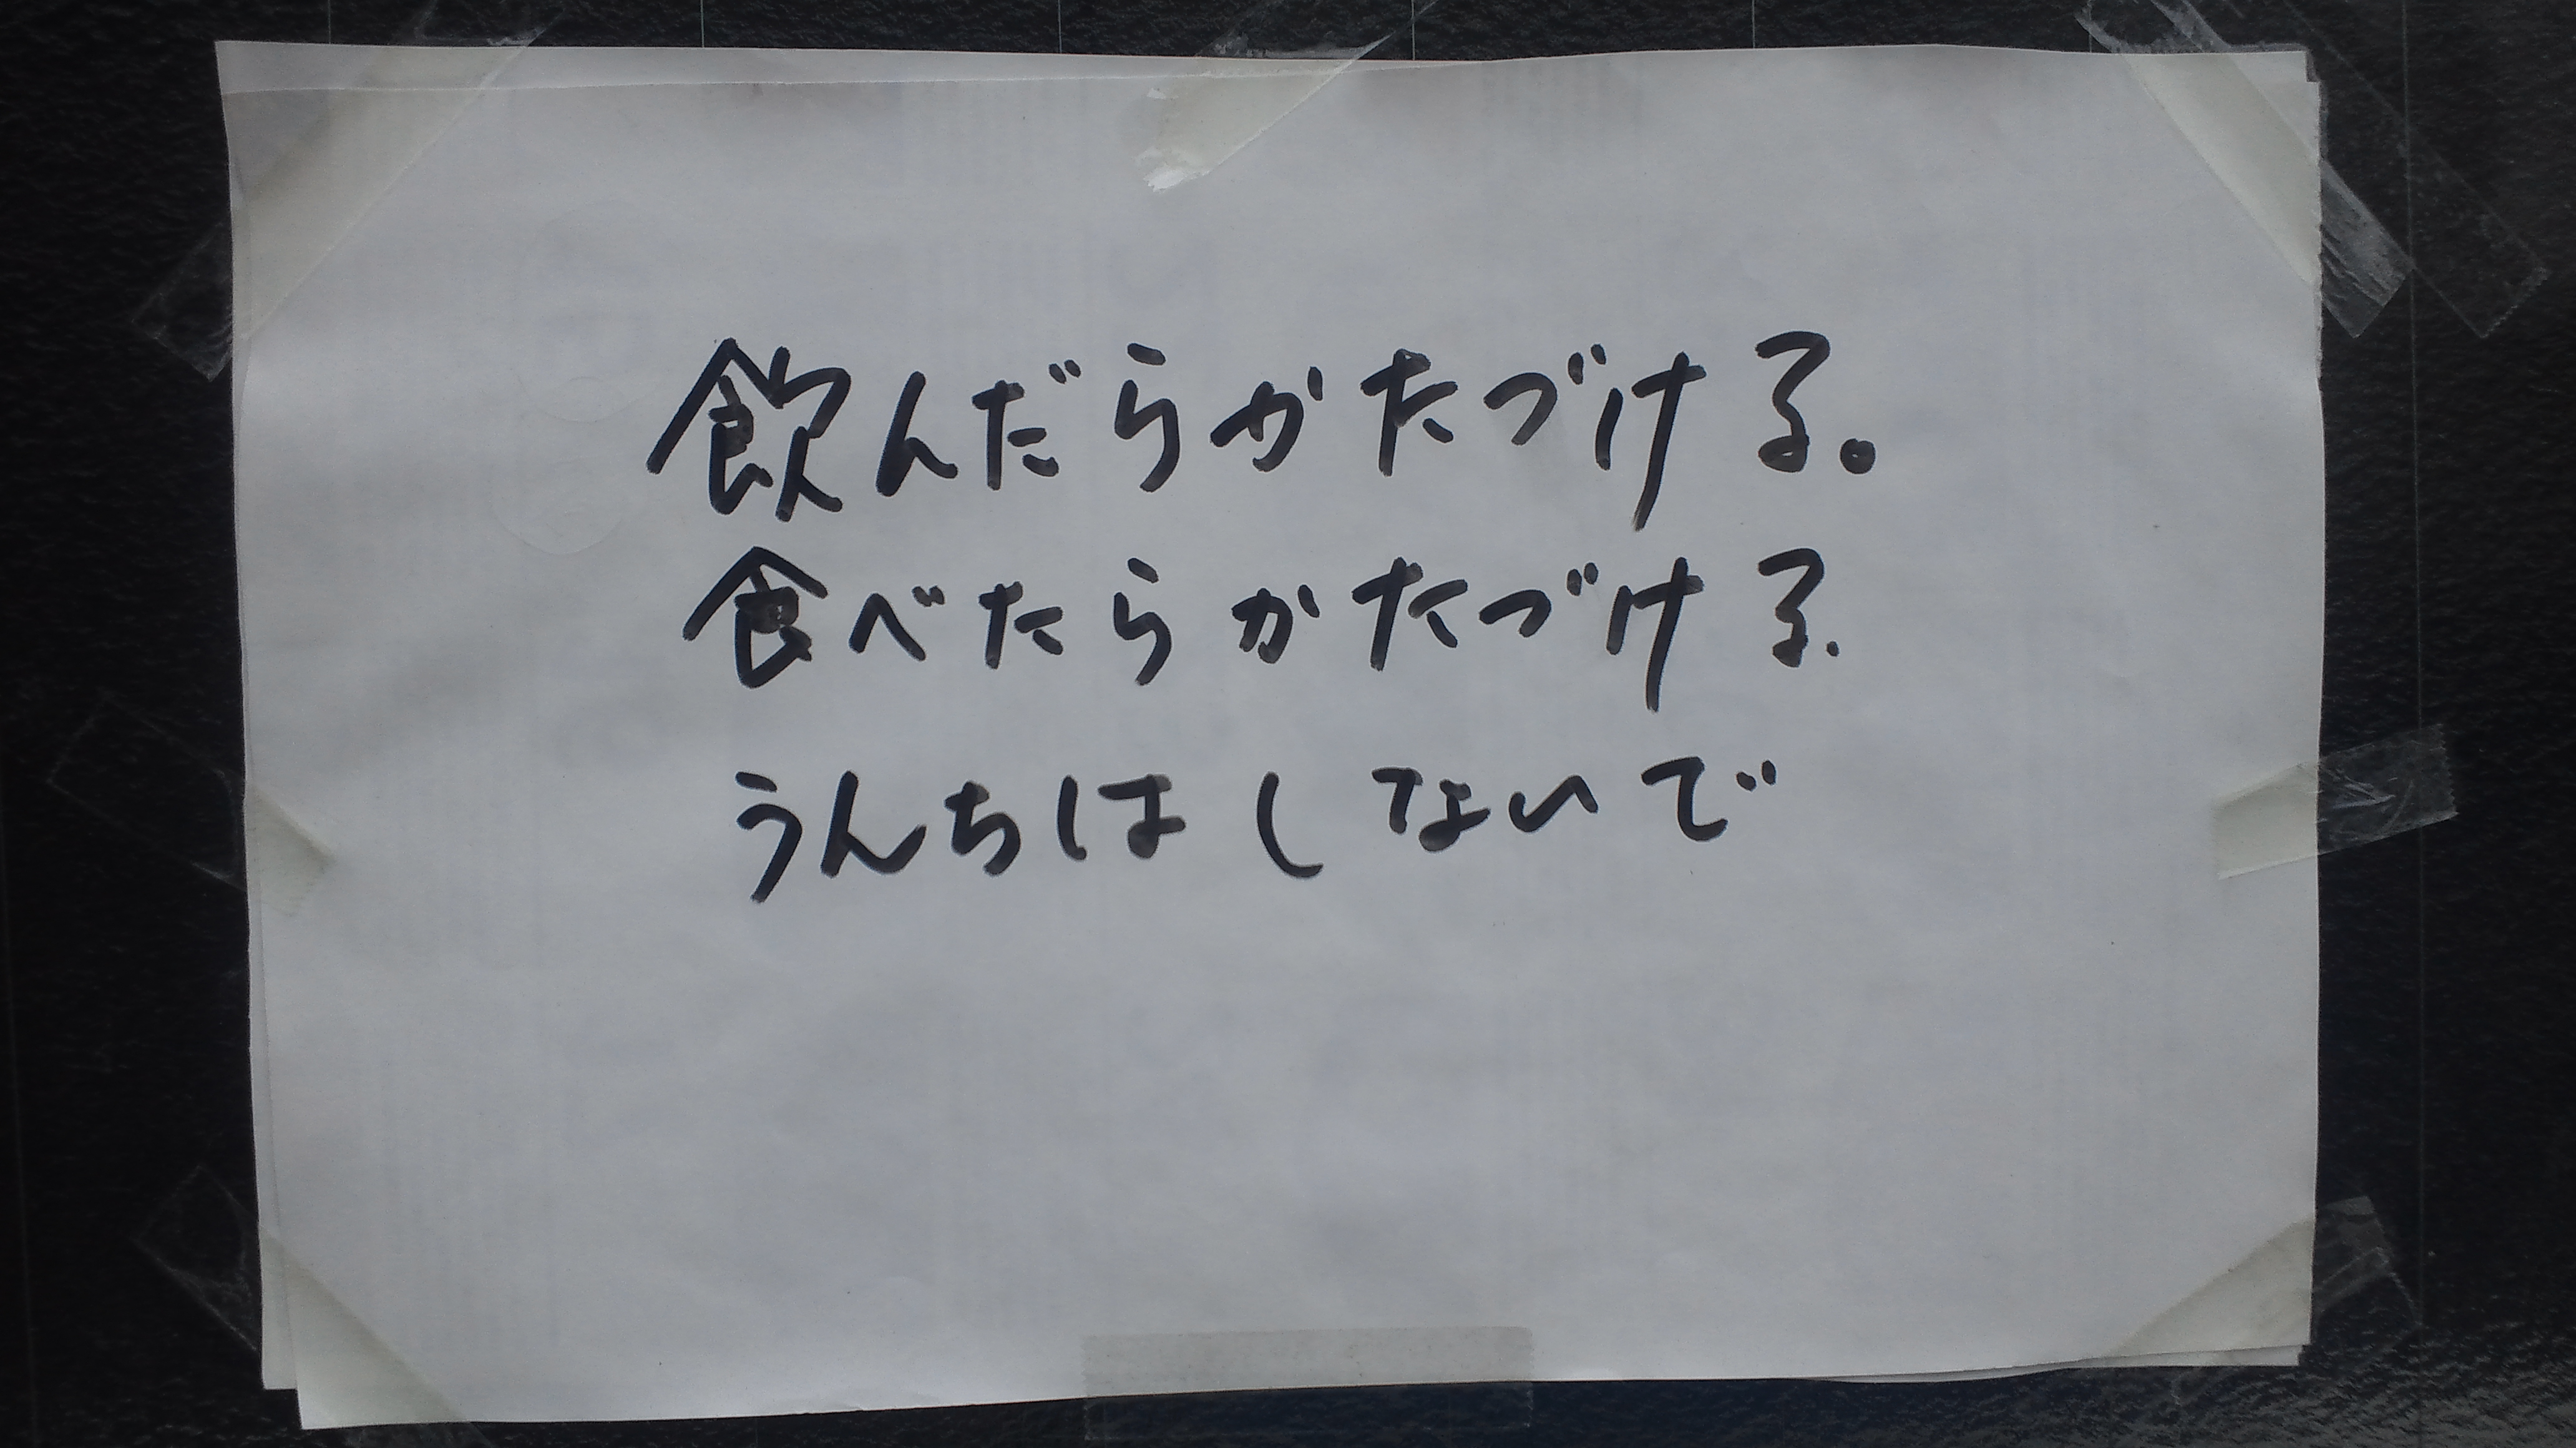 飲んだらかたづける。
食べたらかたづける.
うんちはしないで